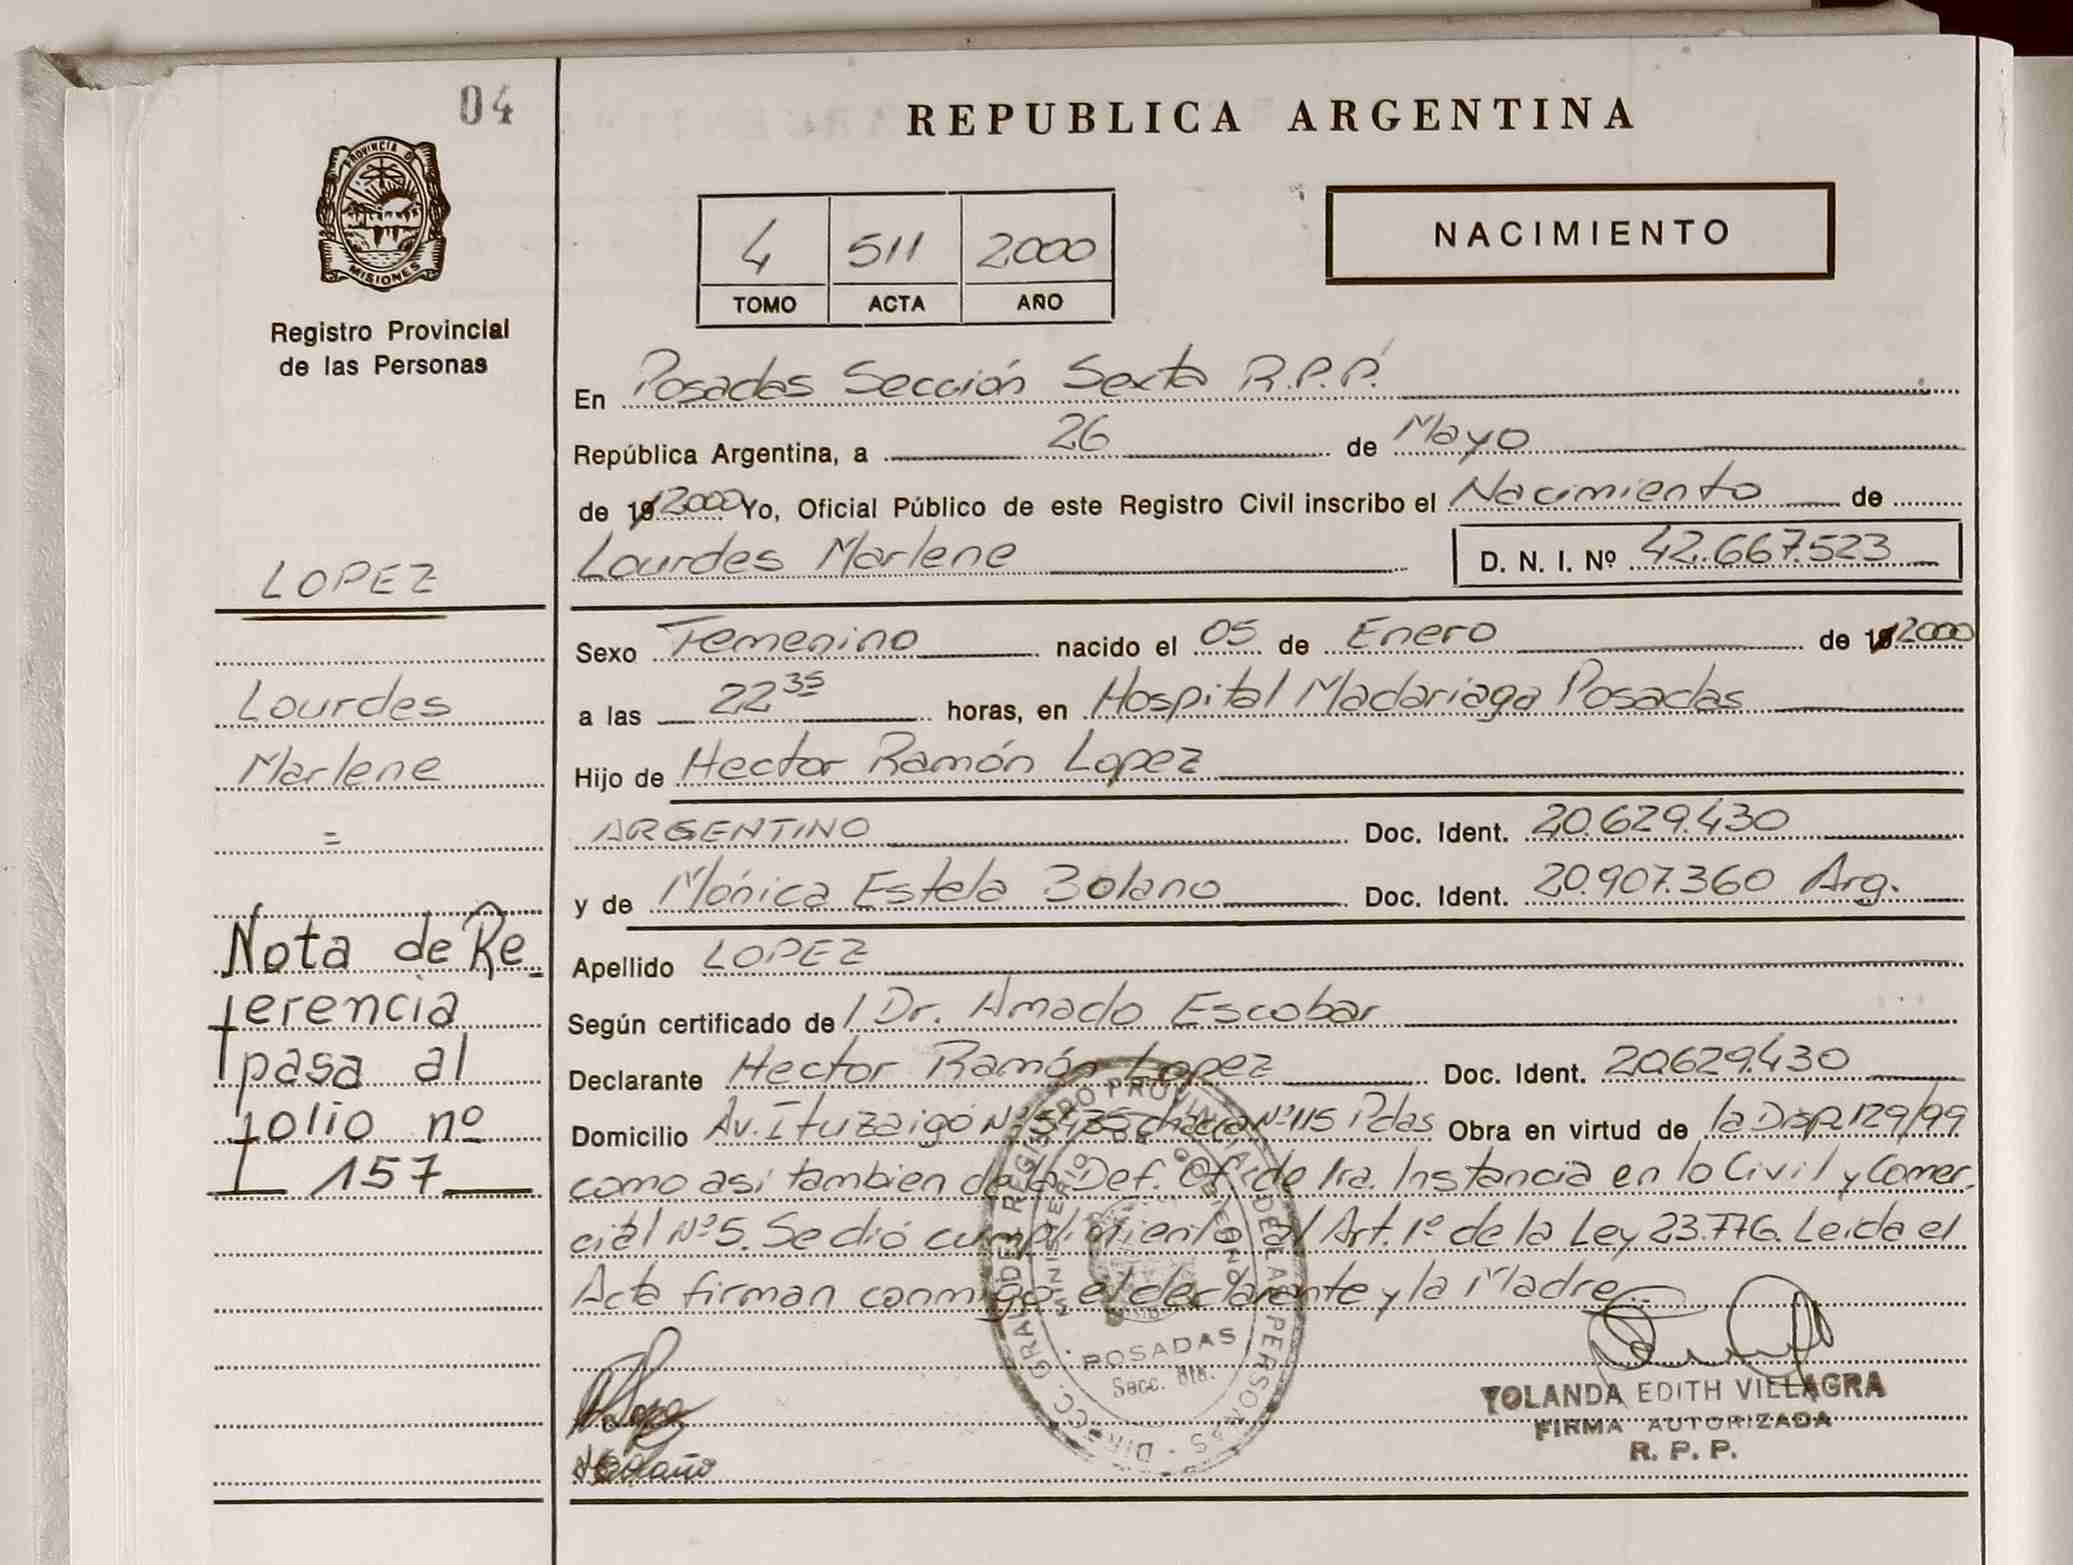 04
PROVINCIA D
MISIONES
Registro Provincial
de las Personas
REPUBLICA ARGENTINA
4 511 2000
TOMO ACTA AÑO
NACIMIENTO
En Posadas Sección Sexta R.P.P.
República Argentina, a 26 de Mayo
de 19 2000 Yo, Oficial Público de este Registro Civil inscribo el Nacimiento de
Lourdes Marlene D. N. I. Nº 42.667.523
LOPEZ
Sexo Femenino nacido el 05 de Enero de 19 2000
Lourdes
a las 22 35 horas, en Hospital Madariaga Posadas
Marlene
Hijo de Hector Ramón Lopez
=
ARGENTINO Doc. Ident. 20.629.430
y de Mónica Estela Bolano Doc. Ident. 20.907.360 Arg.
Nota de Re
ferencia
pasa al
folio nº
157
Apellido LOPEZ
Según certificado de / Dr. Amado Escobar
Declarante Hector Ramón Lopez Doc. Ident. 20.629.430
Domicilio Av. Ituzaigó Nº 5435 chacra Nº 115 Pdas Obra en virtud de la Disp. 129/99
como asi tambien de la Def. Of. de 1ra. Instancia en lo Civil y Comer-
cial Nº 5. Se dió cumplimiento al Art. 1º de la Ley 23.776. Leida el
Acta firman conmigo el declarante y la Madre
DIRECC. GRAL. DEL REGISTRO PROVINCIAL DE LAS PERSONAS
MINISTERIO DE GOBIERNO
POSADAS
Secc. 6ta.
YOLANDA EDITH VILLAGRA
FIRMA AUTORIZADA
R. P. P.